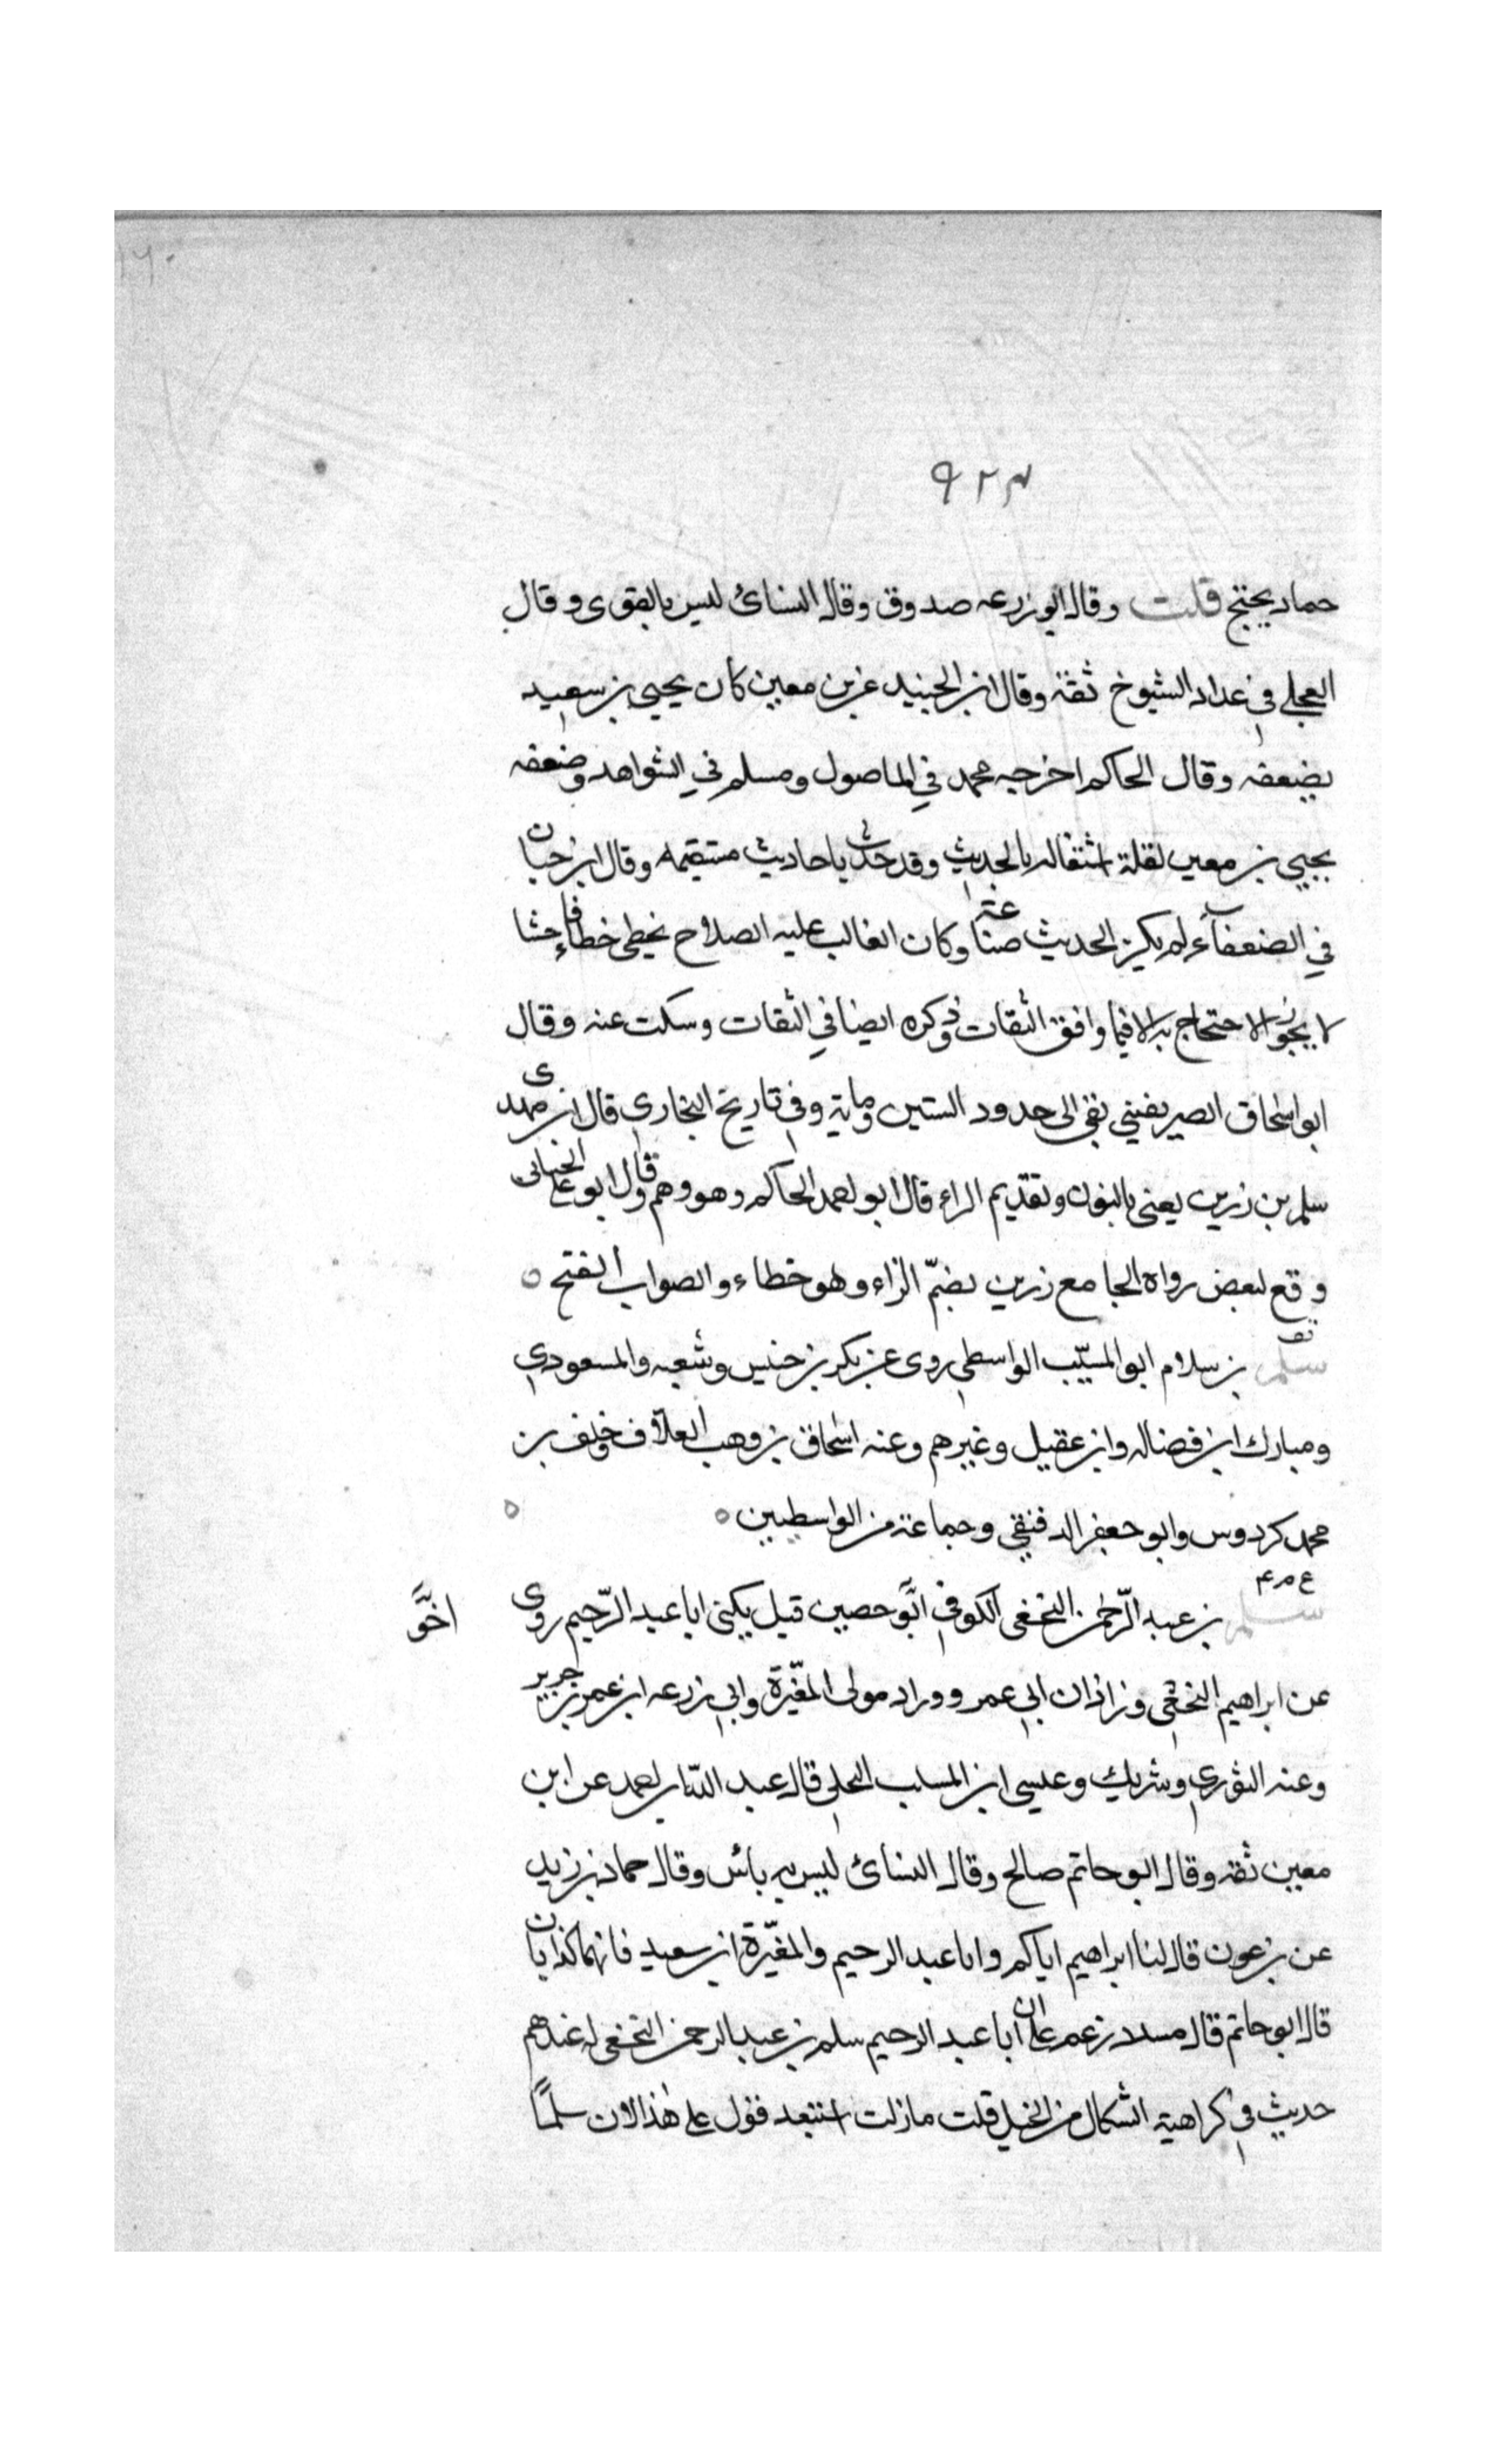 ٩٢٣
حماد يحتج قلت وقال ابو زرعه صدوق وقال النسائ ليس بالقوى وقال
العجلي في عداد الشيوخ ثقة وقال ابن الجنيد عن بن معين كان يحيى بن سعيد
يضعفه وقال الحاكم اخرجه محمد في الماصول ومسلم في الشواهد وضعفه
يحيى بن معين لقلة اشتغاله بالحديث وقد حدث باحاديث مستقيمه وقال ابن حبان
في الضعفآء لم يكن الحديث صناعته وكان الغالب عليه الصلاح يخطى خطاء فاحشا
لا يجوز الاحتجاج به الا فيما وافق الثقات وذكره ايضا في الثقات وسكت عنه وقال
ابو اسحاق الصريفيني بقى الى حدود الستين وماية وفي تاريخ البخاري قال ابن مهدى
سلم بن زرين يعنى بالنون وتقديم الراء قال ابو احمد الحاكم وهو وهم وقال ابو على الجيانى
وقع لبعض رواة الجامع زرين بضمّ الزاء وهو خطاء والصواب الفتح ٥
سلم بن سلام ابو المسيّب الواسطي روى عن بكر بن خنيس وشعبه والمسعودي
ومبارك ابن فضاله وابن عقيل وغيرهم وعنه اسحاق بن وهب العلاف وخلف بن
محمد كردوس وابو جعفر الدقيقي وجماعة من الواسطيين ٥
ع م ٤
سلم بن عبد الرّحمن النخعى الكوفي اخو حصين قيل يكنى ابا عبد الرّحيم روى
اخوَّ
عن ابراهيم النخعي وزاذان ابي عمر ووراد مولى المغيّرة وابي زرعه ابن عمر بن جرير
وعنه الثوري وشريك وعيسى ابن المسيب البجلي قال عبد الله بن احمد عن ابن
معين ثقه وقال ابو حاتم صالح وقال النسائ ليس به بأس وقال حماد بن زيد
عن بن عون قال لنا ابراهيم اياكم وابا عبد الرحيم والمغيّرة ابن سعيد فانهما كذابان
قال ابو حاتم قال مسدد زعم على ان ابا عبد الرحيم سلم بن عبد الرحمن النخعى له عندهم
حديث في كراهية الشكال من الخيل قلت مازلت استبعد قول على هذا لان سلماً